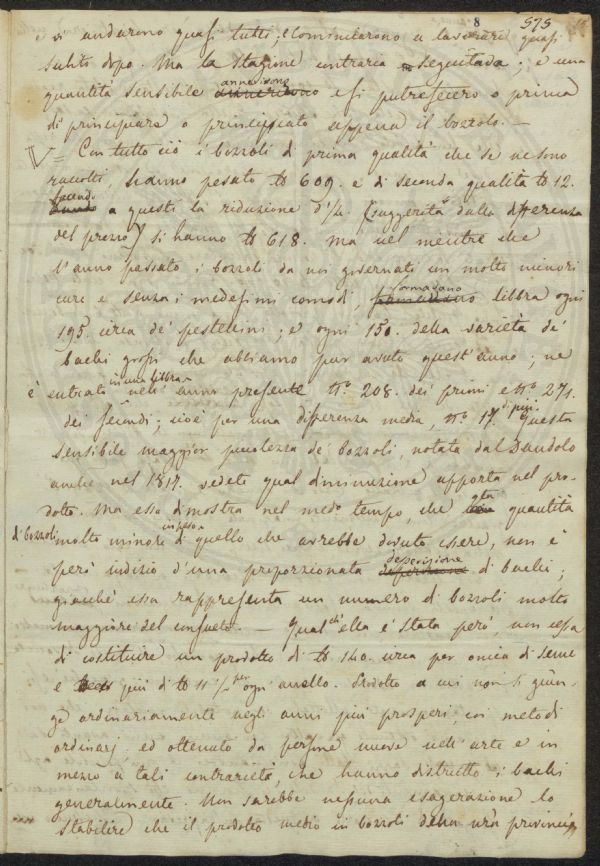 8 575
e vi andarono quasi tutti; e cominciarono a lavorare quasi
subito dopo. Ma la Stagione contraria seguitada; e una
quantità sensibile annerirono e si putrefecero o prima
di principiare o principiato appena il bozzolo. —
V = Con tutto ciò i bozzoli di prima qualità che se ne sono
raccolti, hanno pesato ℔ 609. e di seconda qualità ℔ 12.
facendo a questi la riduzione d'¼. (suggerita dalla differenza
del prezzo) si hanno ℔ 618. Ma nel mentre che
l'anno passato i bozzoli da noi governati con molto minori
cure e senza i medesimi comodi, formavano libbra ogni
195. circa de' pestellini; e ogni 150. della varietà de'
bachi grossi che abbiamo pur avuto quest'anno; ne
è entrato in una libbra nell'anno presente N.° 208. dei primi e N.° 271.
dei secondi; cioè per una differenza media, N.° 17. di più. Questa
sensibile maggior piccolezza de' bozzoli, notata dal Dandolo
anche nel 1817. vedete qual diminuzione apporta nel pro-
dotto. Ma essa dimostra nel med.o tempo, che q.ta quantità
di bozzoli molto minore in peso di quello che avrebbe dovuto essere, non è
però indizio d'una proporzionata desperisione di bachi;
giacchè essa rappresenta un numero di bozzoli molto
maggiore del consueto. — Qual ch'ella è stata però, non cessa
di costituire un prodotto di ℔ 140. circa per oncia di seme
e più di ℔ 11 ½ per ogni anello. Prodotto a cui non si giun-
ge ordinariamente negli anni più prosperi, coi metodi
ordinarj. ed ottenuto da persone nuove nell'arte e in
mezzo a tali contrarietà, che hanno distrutto i bachi
generalmente. Non sarebbe nessuna esagerazione lo
stabilire che il prodotto medio in bozzoli della n.ra provincia